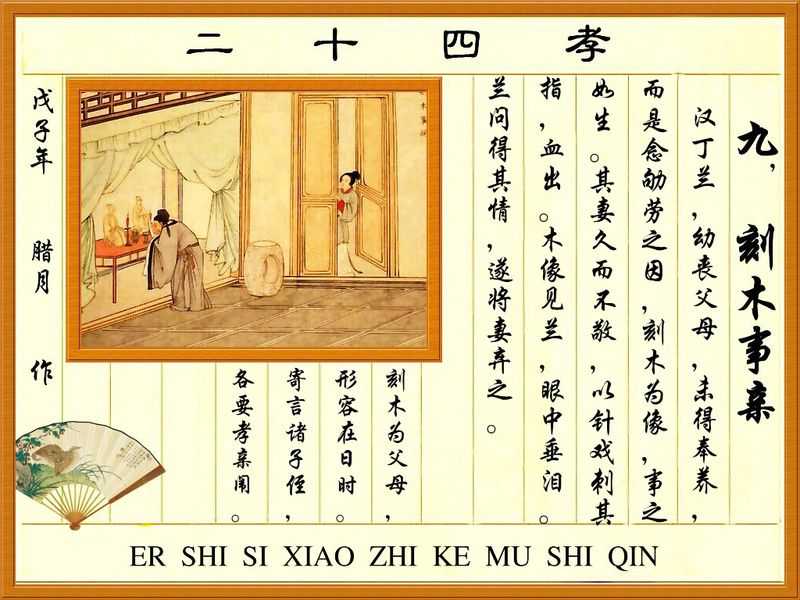 二 十 四 孝
九，刻木事亲
汉丁兰，幼丧父母，未得奉养，
而是念劬劳之因，刻木为像，事之
如生。其妻久而不敬，以针戏刺其
指，血出。木像见兰，眼中垂泪。
兰问得其情，遂将妻弃之。
刻木为父母，
形容在日时。
寄言诸子侄，
各要孝亲闱。
戊子年 腊月 作
ER SHI SI XIAO ZHI KE MU SHI QIN